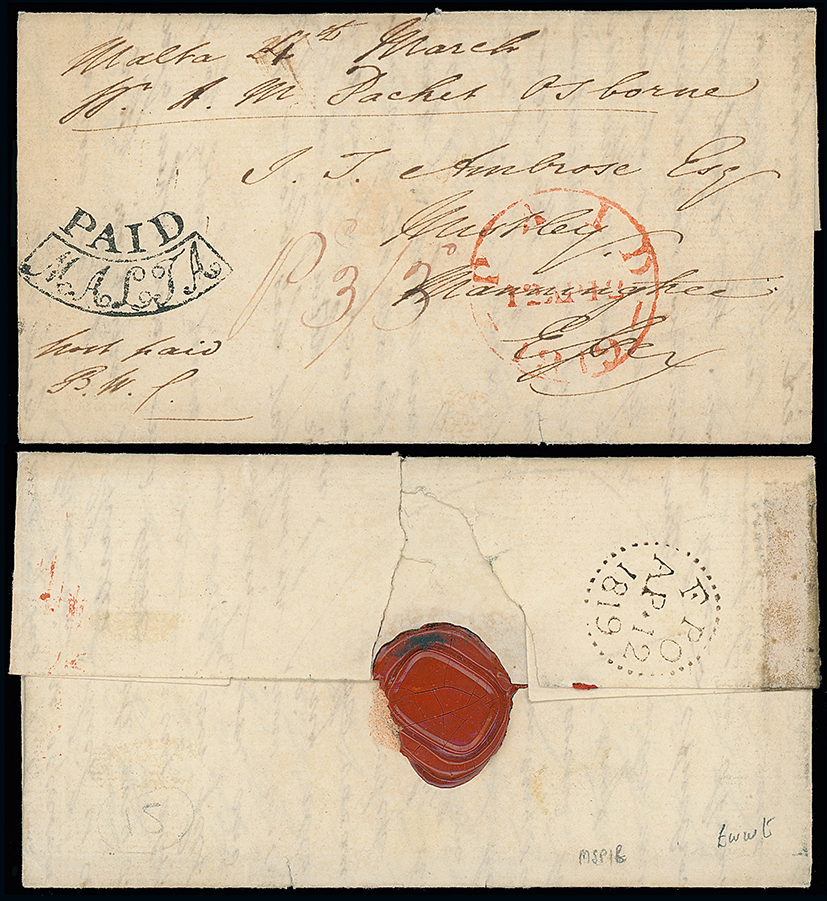 Malta 24th March
Pr. H. M. Packet Osborne
J. T. Ambrose Esq
Mistley
Manningtree
Essex
PAID
MALTA
P 3/3
PAID
1819
post paid
B. W. C.
F P O
AP. 12
1819
15
MSP1B